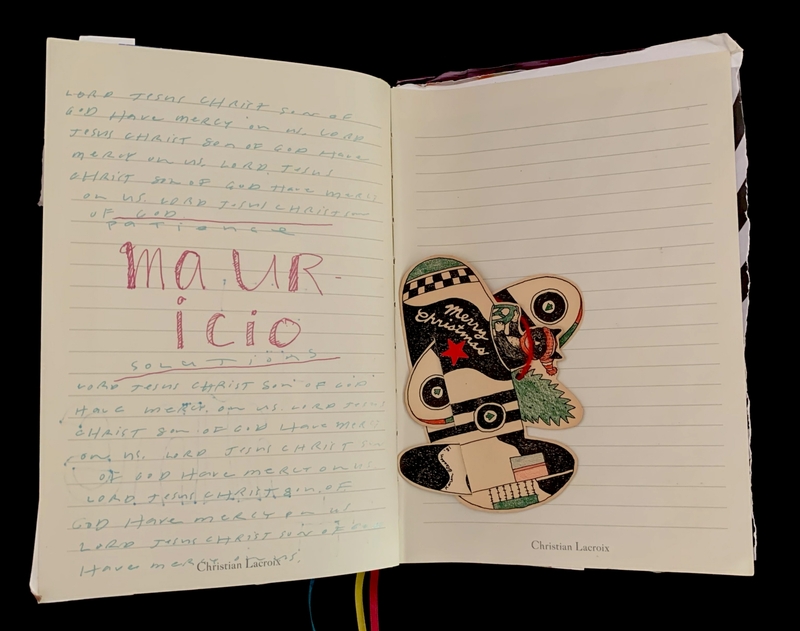 LORD JESUS CHRIST Son OF
GOD HAVE MERCY on us. LORD
JESUS CHRIST Son OF GOD HAVE
mercy on us. LORD. JESUS
CHRIST Son OF GOD HAVE mercy
on us. LORD JESUS CHRIST Son
OF GOD
Patience
MAUR-
icio
Solutions
LORD JESUS CHRIST Son OF GOD
HAVE mercy. on us. LORD JESUS
CHRIST Son OF GOD HAVE mercy
on us. LORD JESUS CHRIST Son
OF GOD HAVE mercy on us
LORD JESUS CHRIST Son OF
GOD HAVE mercy on us
LORD JESUS CHRIST Son OF GOD
HAVE mercy on us.
Christian Lacroix
Merry
Christmas
Christian Lacroix